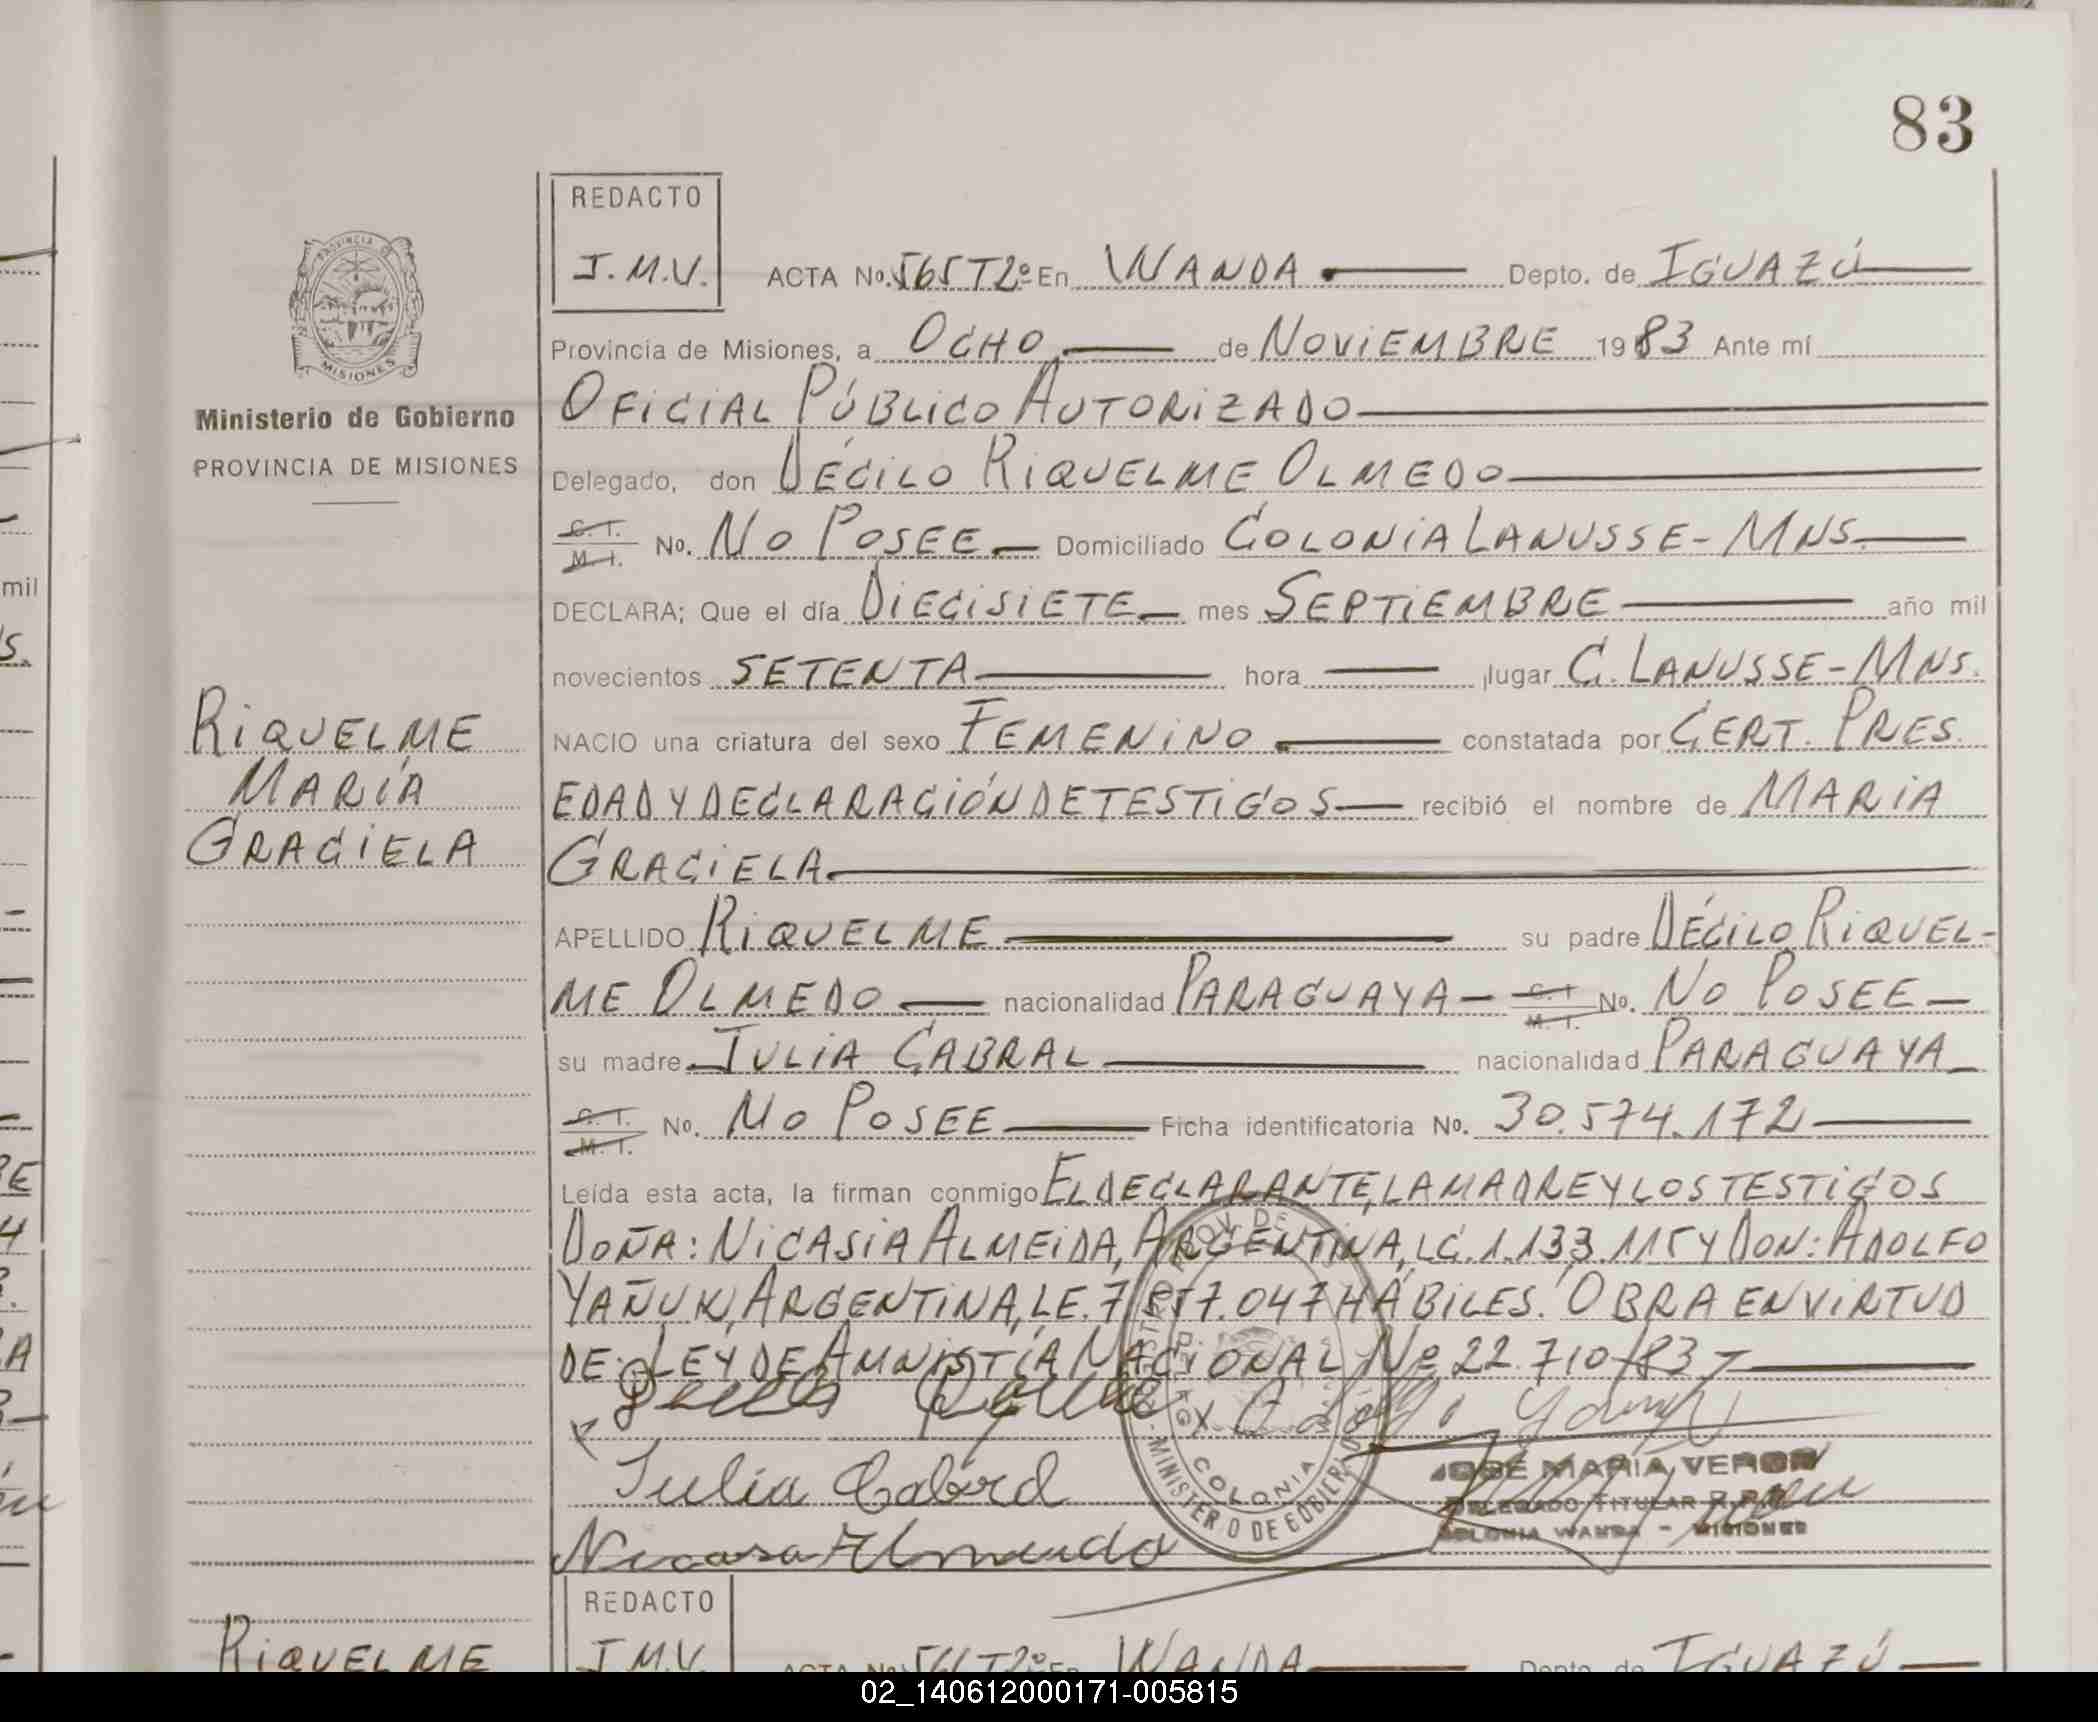 83
REDACTO
J.M.V.
ACTA No. 565 T2º En WANDA Depto. de IGUAZÚ
Provincia de Misiones, a OCHO de NOVIEMBRE 1983 Ante mí
OFICIAL PÚBLICO AUTORIZADO
Delegado, don DÉCILO RIQUELME OLMEDO
C. I.
M. I. No. NO POSEE Domiciliado COLONIA LANUSSE - MNS.
DECLARA; Que el día DIECISIETE mes SEPTIEMBRE año mil
novecientos SETENTA hora lugar C. LANUSSE - MNS.
NACIO una criatura del sexo FEMENINO constatada por CERT. PRES.
EDAD Y DECLARACIÓN DE TESTIGOS recibió el nombre de MARIA
GRACIELA
APELLIDO RIQUELME su padre DÉCILO RIQUEL-
ME OLMEDO nacionalidad PARAGUAYA C. I. M. I. No. NO POSEE
su madre JULIA CABRAL nacionalidad PARAGUAYA
C. I.
M. I. No. NO POSEE Ficha identificatoria No. 30.574.172
Leída esta acta, la firman conmigo EL DECLARANTE, LA MADRE Y LOS TESTIGOS
DOÑA: NICASIA ALMEIDA, ARGENTINA, LC. 1.133.115 Y DON: ADOLFO
YAÑUK, ARGENTINA, L.E. 7.047 HÁBILES. OBRA EN VIRTUD
DE LEY DE AMNISTÍA NACIONAL Nº 22.710/83
Julia Cabrd
JOSÉ MARÍA VERON
DELEGADO TITULAR R.P.
COLONIA WANDA - MISIONES
MINISTERIO DE GOBIERNO
COLONIA
PROVINCIA DE
MISIONES
Ministerio de Gobierno
PROVINCIA DE MISIONES
RIQUELME
MARÍA
GRACIELA
REDACTO
J.M.V.
RIQUELME
ACTA No. T2º En WANDA Depto. de IGUAZÚ
mil
02_140612000171-005815